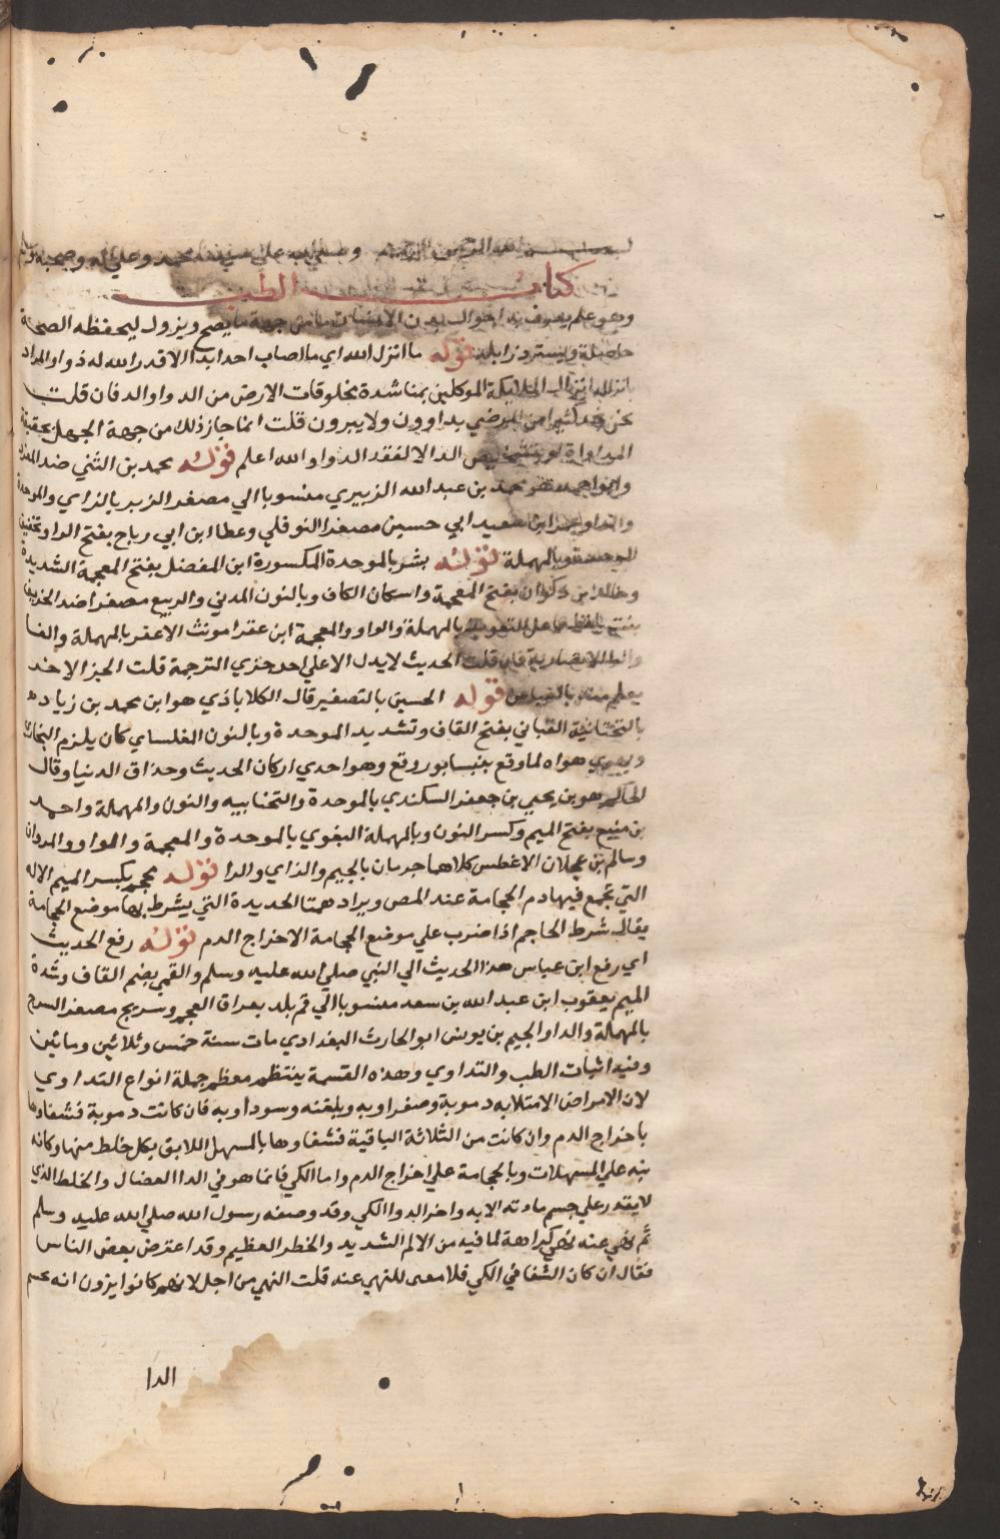 بسم الله الرحمن الرحيم وصلي الله علي سيدنا محمد وعلي اله وصحبه وسلم
كتاب الطب
وهو علم يعرف به احوال بدن الانسان من جهة ما يصح ويزول ليحفظه الصحة
حاصلة ويسترد زايلة قوله ما انزل الله اي ما اصاب احدا بدا الا قدر الله له دوا والمراد
بانزاله انزال الملايكة الموكلين بمناشدة مخلوقات الارض من الدوا والدا فان قلت
نحن نجد كثيرا من المرضي يداوون ولا يبرون قلت انما جاز ذلك من جهة الجهل بحقيقة
المداواة او بتشخيص الدا لا لفقد الدوا والله اعلم قوله محمد بن المثني ضد المفرد
وابو احمد هو محمد بن عبد الله الزبيري منسوبا الي مصغر الزبر بالزاي والموحدة
والراء وعمر ابن سعيد ابي حسين مصغرا النوفلي وعطا ابن ابي رباح بفتح الرا وتخفيف
الموحدة وبالمهملة قوله بشر بالموحدة المكسورة ابن المفضل بفتح المعجمة الشديدة
وخالد بن ذكوان بفتح المعجمة واسكان الكاف وبالنون المدني والربيع مصغرا ضد الخريف
بالمهملة والواو والمعجمة ابن عفرا مونث الاعفر بالمهملة والفا
والرا الانصارية فان قلت الحديث لا يدل الا علي احد جزي الترجمة قلت الجز الاخر
يعلم منه بالقياس قوله الحسين بالتصغير قال الكلاباذي هو ابن محمد بن زياده
بالتحتانية القباني بفتح القاف وتشديد الموحدة وبالنون الغلساي كان يلزم البخاري
ويهوي هواه لما وقع بنيسابور وقع وهو احدي اركان الحديث وحذاق الدنيا وقال
الحاكم هو بن يحيي بن جعفر السكندي بالموحدة والتحتانيه والنون والمهملة واحمد
بن منيع بفتح الميم وكسر النون وبالمهملة البغوي بالموحدة والمعجمة والواو والمروان
وسالم بن عجلان الاغطس كلاهما جرمان بالجيم والزاي والرا قوله محجم بكسر الميم الاله
التي تجمع فيها دم الحجامة عند المص ويراد همتا الحديدة التي يشرط بها موضع الحجامة
يقال شرط الحاجم اذا ضرب علي موضع الحجامة الاخراج الدم قوله رفع الحديث
اي رفع ابن عباس هذا الحديث الي النبي صلي الله عليه وسلم والقمي بضم القاف وشدة
الميم يعقوب ابن عبد الله بن سعد منسوبا الي قم بلد بعراق العجم وسريج مصغر السرج
بالمهملة والرا والجيم بن يونس ابو الحارث البغدادي مات سنة خمس وثلاثين ومائتين
وفيه اثبات الطب والتداوي وهذه القسمة ينتظم معظم جملة انواع التداوي
لان الامراض الامتلايه دموية وصفراويه وبلغمه وسوداويه فان كانت دموية فشفاوها
باخراج الدم وان كانت من الثلاثة الباقية فشفاوها بالمسهل اللايق بكل خلط منها وكانه
نبه علي المسهلات وبالحجامة علي اخراج الدم واما الكي فانما هو في الدا العضال والخلط الذي
لا يقدر علي حسم مادته الا به واخر الدوا الكي وقد وصفه رسول الله صلي الله عليه وسلم
ثم نهي عنه نهي كراهة لما فيه من الالم الشديد والخطر العظيم وقد اعترض بعض الناس
فقال ان كان الشفا في الكي فلا معى للنهي عنه قلت النهي من اجل لانهم كانوا يزون انه يحسم
الدا